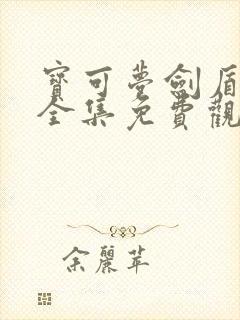 寶可夢劍盾
全集免費觀
余麗苹